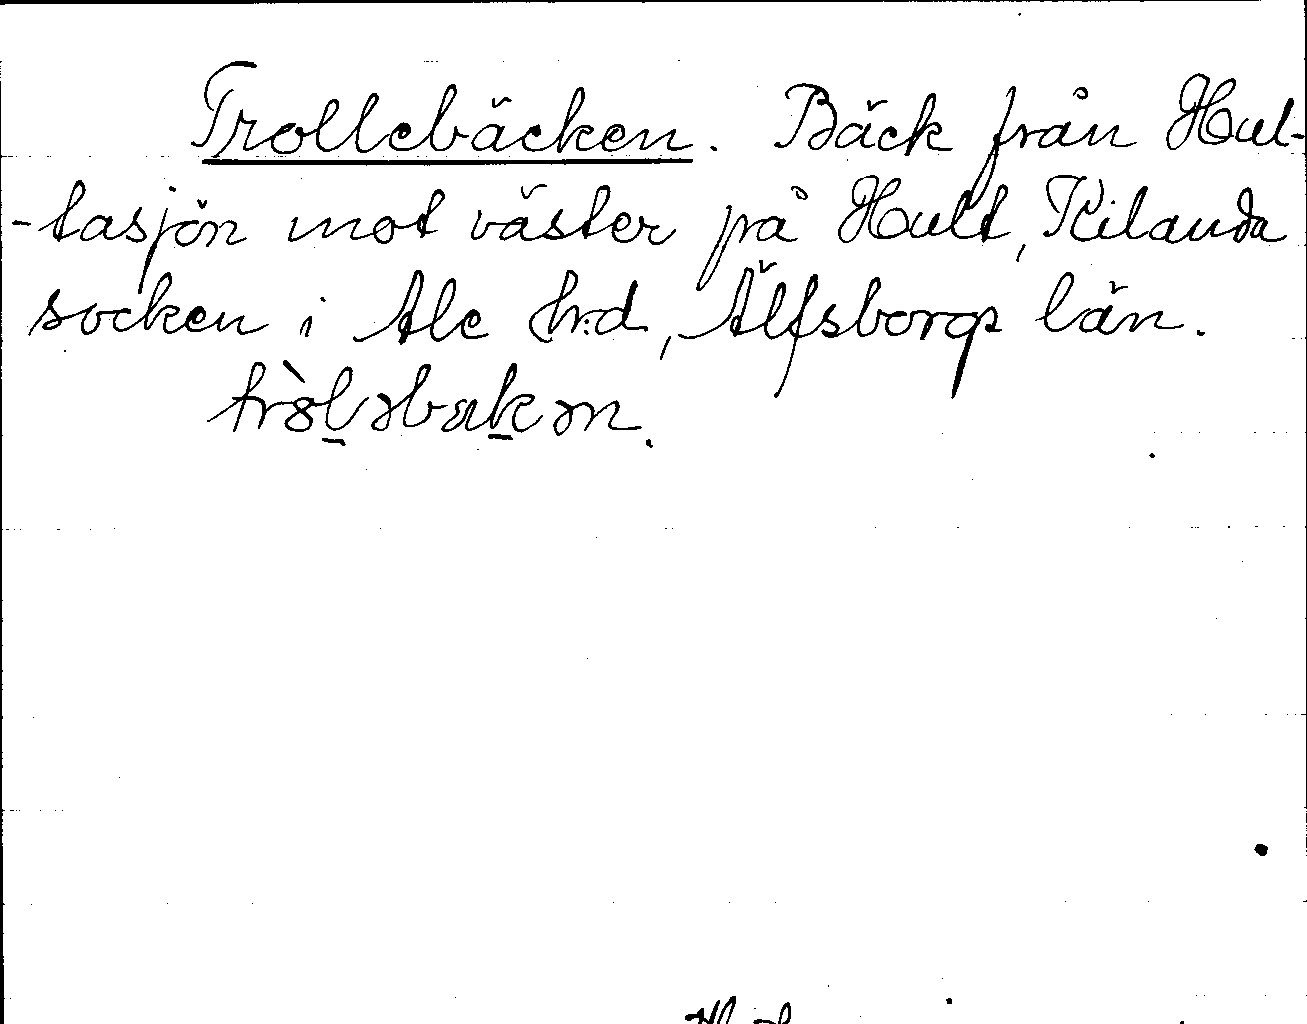 Trollebäcken. Bäck från Hul-
-tasjön mot väster på Hult, Kilanda
socken i Ale h:d, Älfsborgs län.
trò̀l̲əbak̲ən.